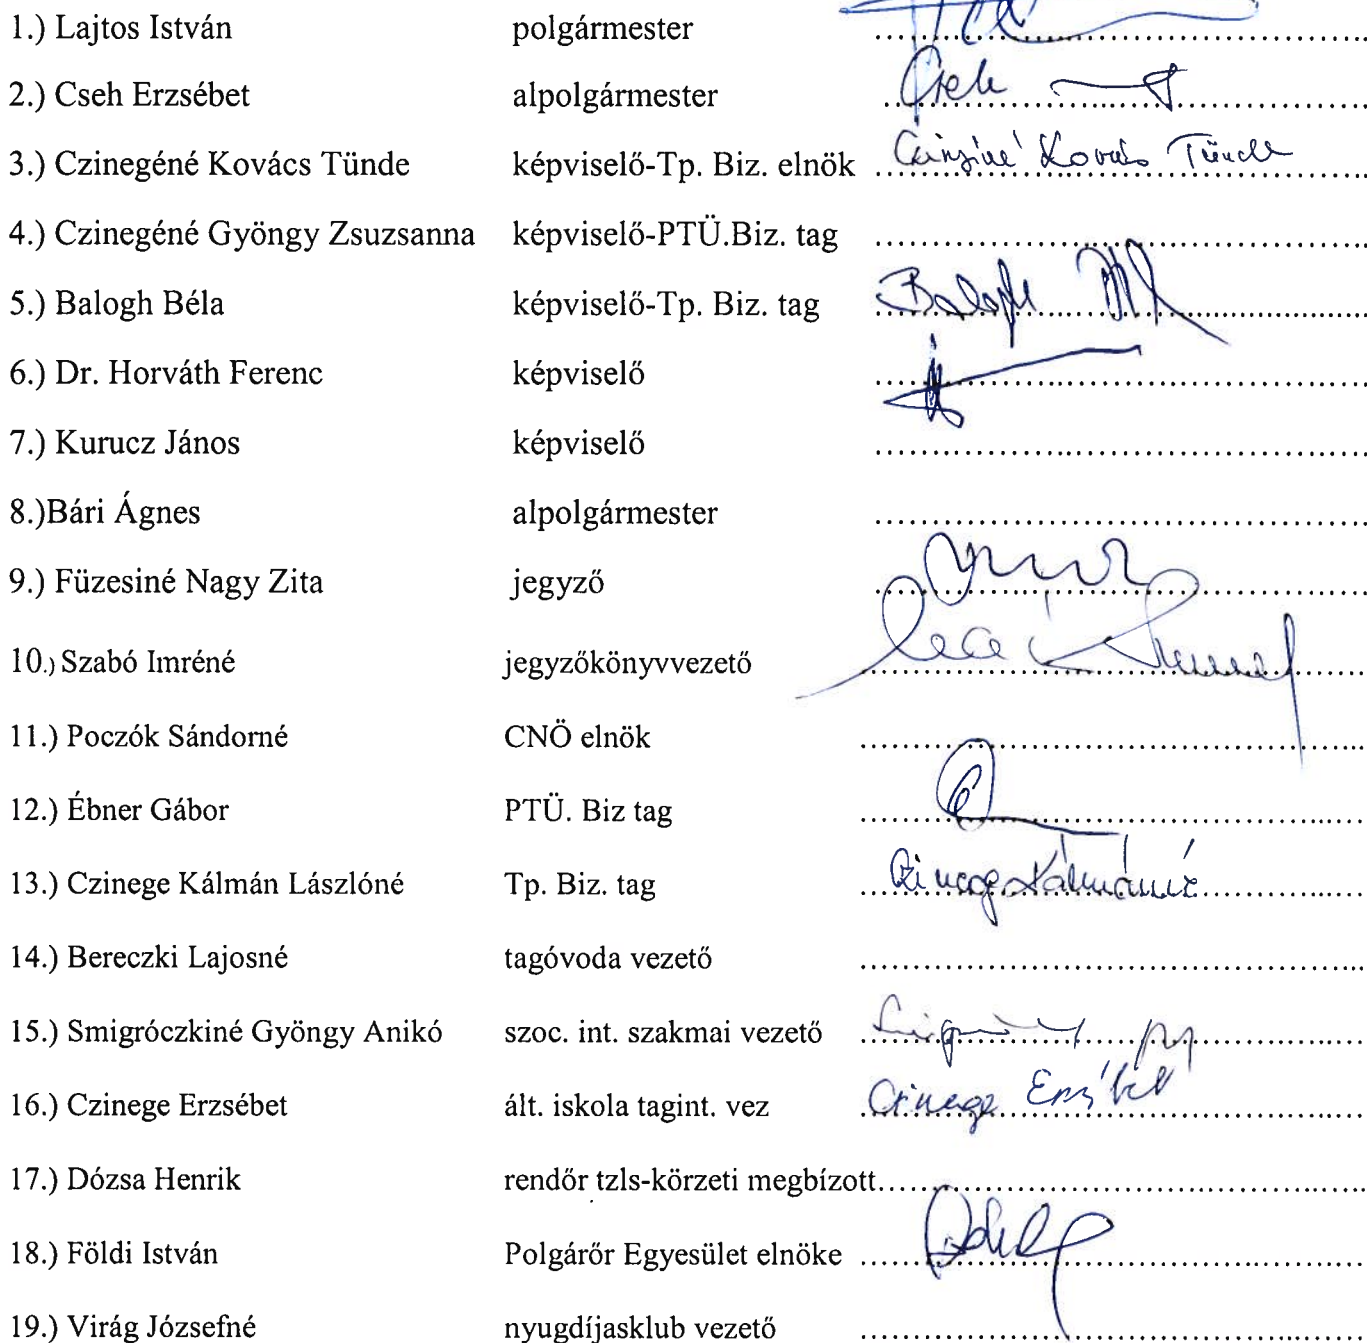 1.) Lajtos István polgármester ........................................
2.) Cseh Erzsébet alpolgármester Cseh ........................................
3.) Czinegéné Kovács Tünde képviselő-Tp. Biz. elnök Czinegéné Kovács Tünde
4.) Czinegéné Gyöngy Zsuzsanna képviselő-PTÜ.Biz. tag ........................................
5.) Balogh Béla képviselő-Tp. Biz. tag Balogh ........................................
6.) Dr. Horváth Ferenc képviselő ........................................
7.) Kurucz János képviselő ........................................
8.)Bári Ágnes alpolgármester ........................................
9.) Füzesiné Nagy Zita jegyző ........................................
10.) Szabó Imréné jegyzőkönyvvezető ........................................
11.) Poczók Sándorné CNÖ elnök ........................................
12.) Ébner Gábor PTÜ. Biz tag ........................................
13.) Czinege Kálmán Lászlóné Tp. Biz. tag Czinege Kálmánné
14.) Bereczki Lajosné tagóvoda vezető ........................................
15.) Smigróczkiné Gyöngy Anikó szoc. int. szakmai vezető ........................................
16.) Czinege Erzsébet ált. iskola tagint. vez Czinege Erzsébet
17.) Dózsa Henrik rendőr tzls-körzeti megbízott........................................
18.) Földi István Polgárőr Egyesület elnöke ........................................
19.) Virág Józsefné nyugdíjasklub vezető ........................................